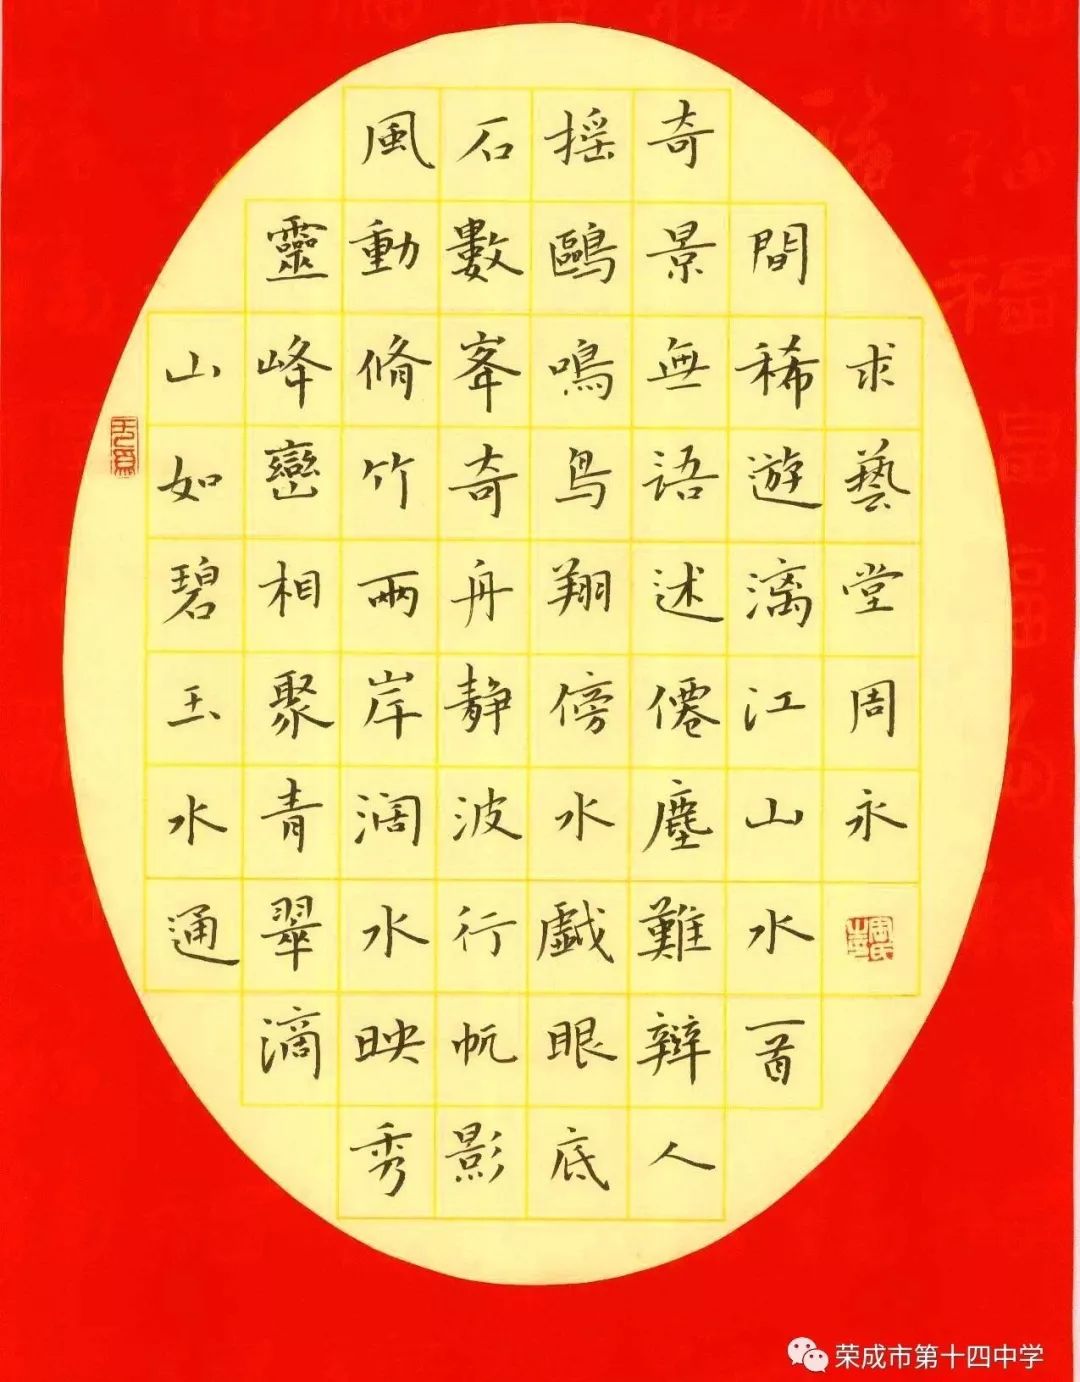 山如碧玉水通
靈峰巒相聚青翠滴
風動脩竹兩岸闊水映秀
石數峯奇舟靜波行帆影
摇鷗鳴鳥翔傍水戲眼底
奇景無語述僊塵難辯人
間稀遊漓江山水一首
求藝堂周永
荣成市第十四中学